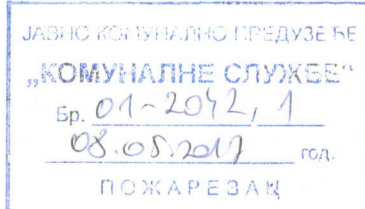 ЈАВНО КОМУНАЛНО ПРЕДУЗЕЋЕ
„КОМУНАЛНЕ СЛУЖБЕ“
Бр. 01-2042/1
08.05.2017 год.
ПОЖАРЕВАЦ